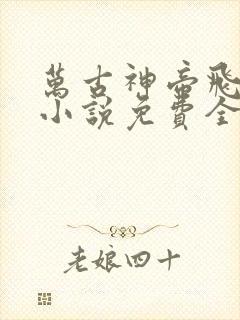 萬古神帝飛
小說免費全
老娘四十